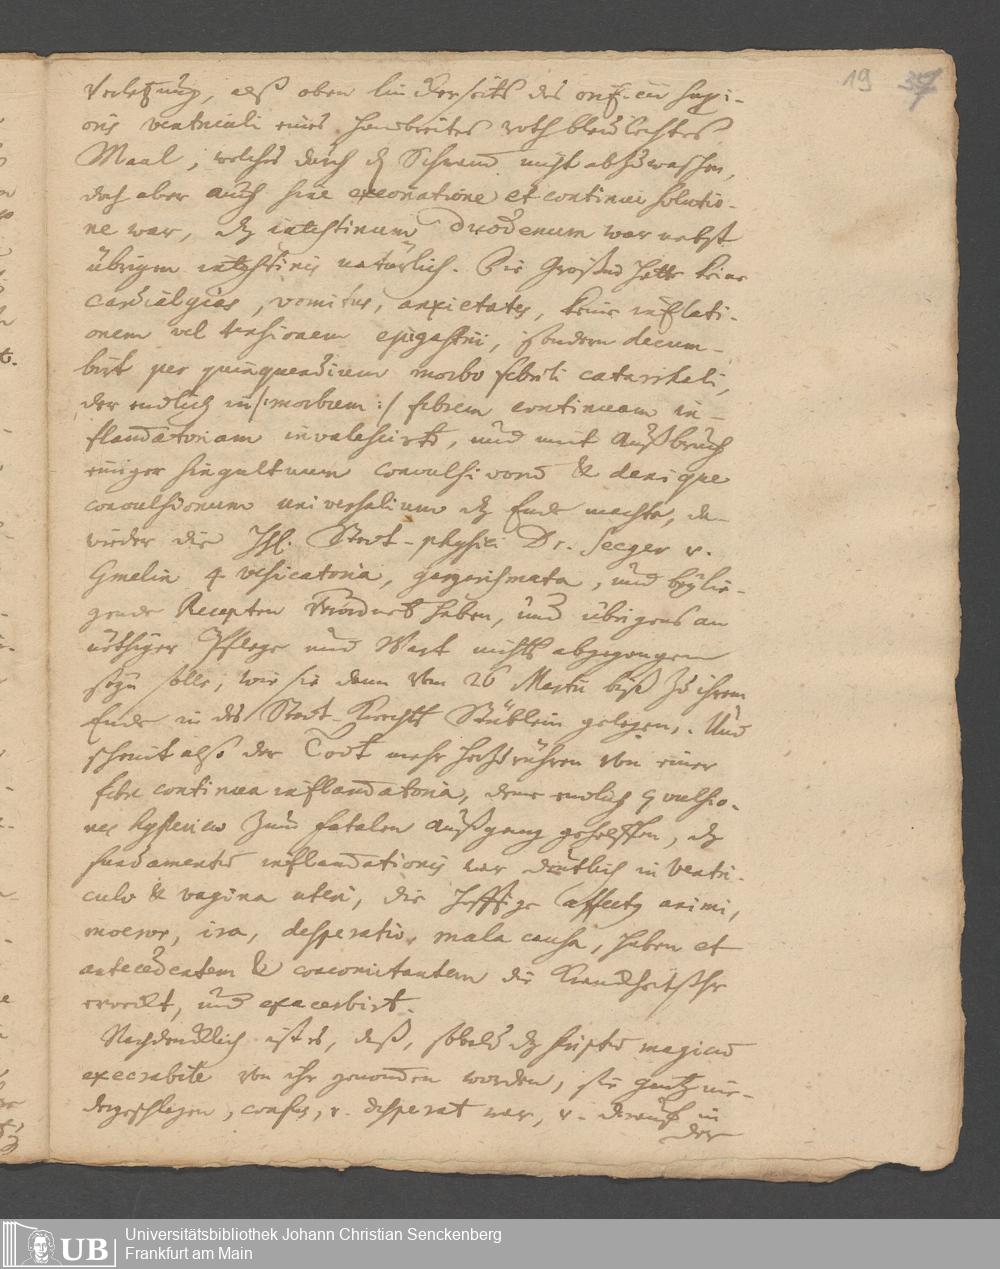 19 37
Verletzung, alß oben linckerseits des orificii superi-
oris ventriculi eines handbreites roth bleulechtes
Maal, welches durch dz Schwam nicht abzuwaschen,
doch aber auch sine excoriatione et continui solutio-
ne war, dz intestinum Duodenum war nebst
übrigen intestinis natürlich. Die Großin hatte keine
cardialgias, vomitus, anxietates, keine inflati-
onem vel tensionem epigastrii, sondern decum-
birt per quinquendium morbo febrili catarrhali,
der endlich in /: morbum :/ febrem continuam in-
flam̄atoriam invalescirte, und mit Außbruch
einiger singultuum convulsivorum & denique
convulsionum universalium dz Ende machte, da-
wieder die Hl. Statt-physici Dr. Seeger v.
Gmelin 4 vesicatoria, gargarismata, und beylie-
gende Recepten verordnet haben, und übrigens an
nöthiger Pflege und Wart nichts abgegangen
seyn solle, wie sie dann vom 26 Martii biß zu ihrem
Ende in des Statt-Knechts Stüblein gelegen,. Und
scheint also der Todt mehr herzurühren von einer
febri continua inflam̄atoria, deme endlich Convulsio-
nes hystericae zum fatalen Außgang geholffen, dz
fundamentum inflam̄ationis war deutlich in ventri-
culo & vagina uteri, die hefftige affectus animi,
moeror, ira, desperatio, mala causa, haben et
antecedentem & concomitantem die Kranckheit sehr
erweckt, und exacerbirt.
Nachdencklich ist es, daß, sobald dz scriptum magicum
execrabile von ihr genommen worden, sie gantz nie-
dergeschlagen, confus, v. desperat war, v. darauf in
der
Universitätsbibliothek Johann Christian Senckenberg
Frankfurt am Main
UB